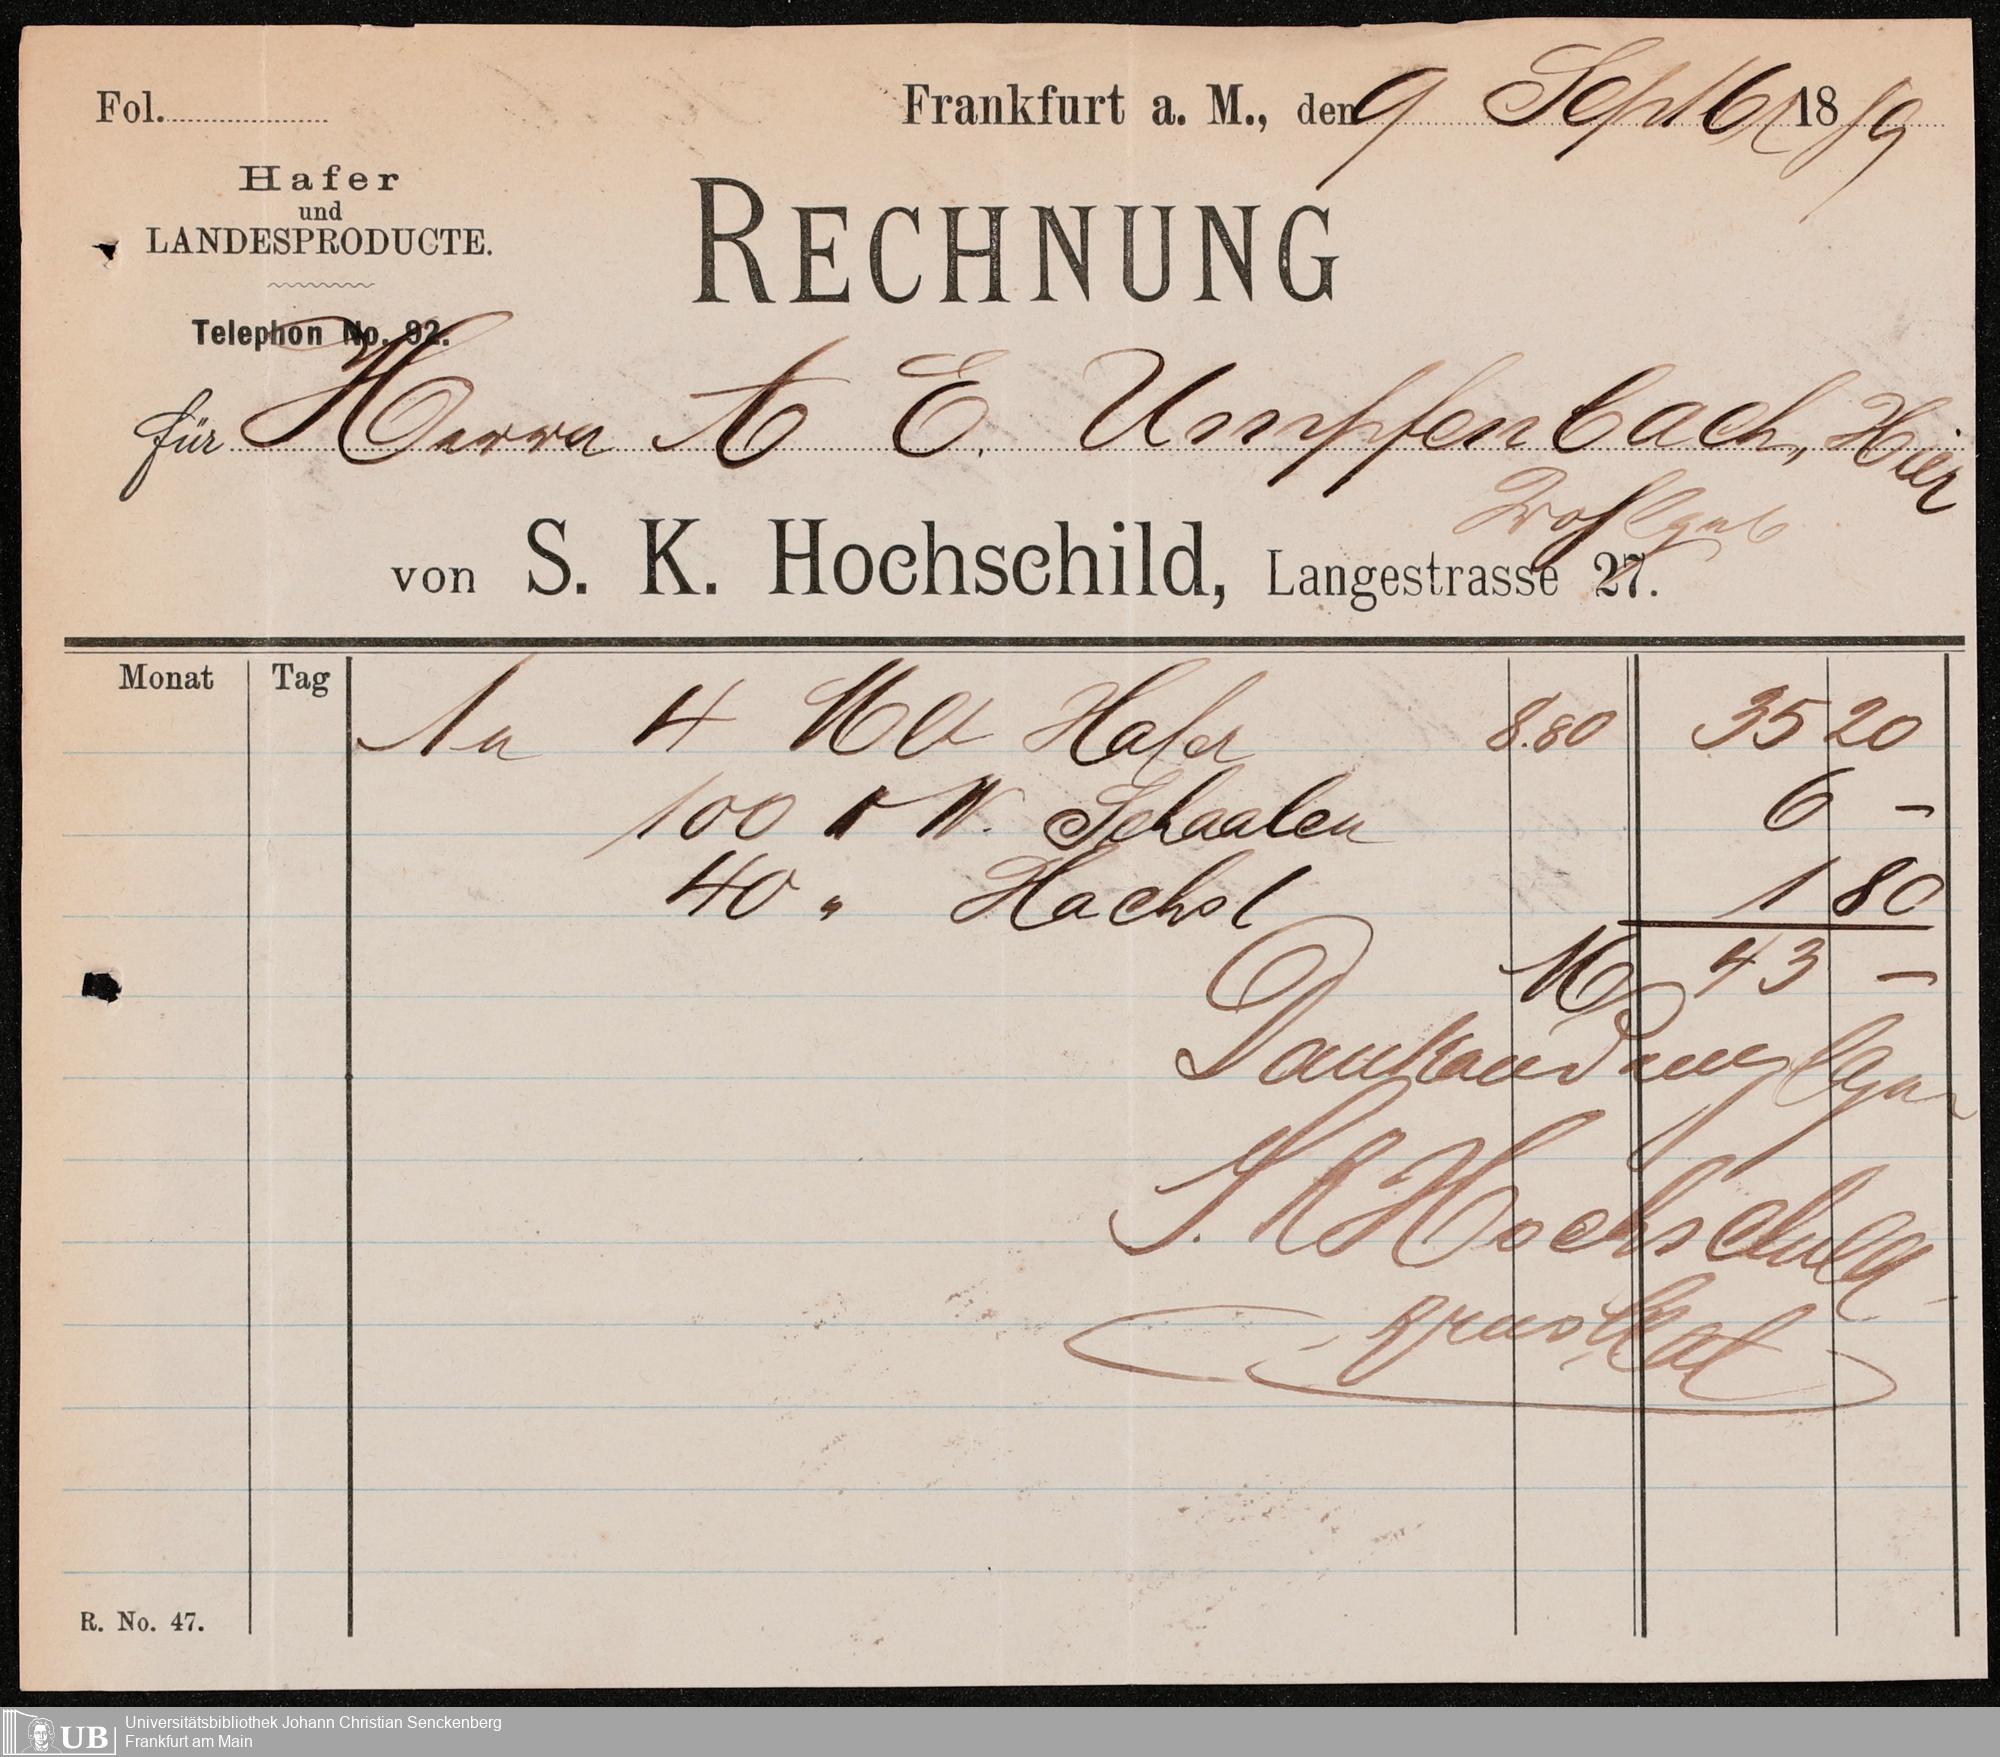 Fol.
Frankfurt a. M., den 9 Septbr 1889
Hafer
und
LANDESPRODUCTE.
RECHNUNG
Telephon No. 92.
für Herrn A E. Umpfenbach, Hier
von S. K. Hochschild, Langestrasse 27.
Monat Tag
An 4 Mltr Hafer 8.80 35 20
100 W. Schaalen 6 –
40 " Hachsl 1 80
M 43 –
Dankend empfangen
S. K Hochschild
R. No. 47.
UB
Universitätsbibliothek Johann Christian Senckenberg
Frankfurt am Main